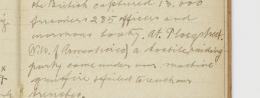 the British captured 13,000
prisoners 285 officers and
enormous booty. At Ploegstreet
(N.W. of Armentieres) a hostile raiding
party came under our machine
gunfire & failed to reach our
trenches.